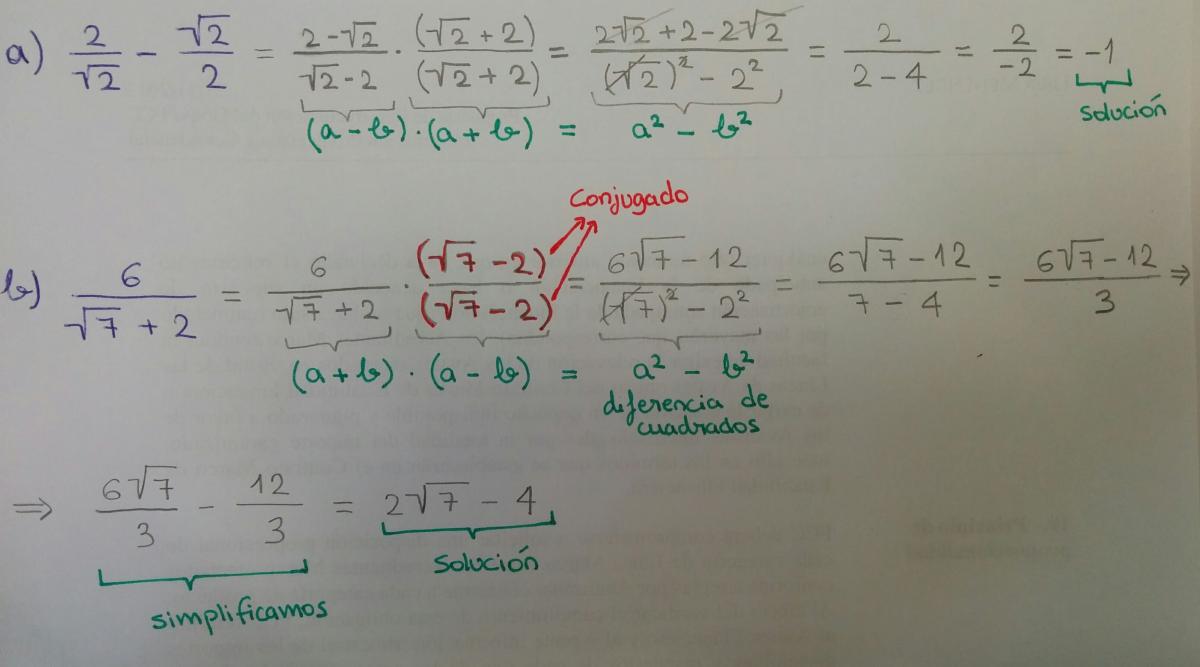 a) 2/√2 − √2/2 = (2−√2)/(√2−2) · (√2+2)/(√2+2) = (2√2+2−2√2)/((√2)²−2²) = 2/(2−4) = 2/−2 = −1
(a−b)·(a+b) = a²−b²
solución
conjugado
b) 6/(√7+2) = 6/(√7+2) · (√7−2)/(√7−2) = (6√7−12)/((√7)²−2²) = (6√7−12)/(7−4) = (6√7−12)/3 ⇒
(a+b)·(a−b) = a²−b²
diferencia de
cuadrados
⇒ 6√7/3 − 12/3 = 2√7 − 4
solución
simplificamos